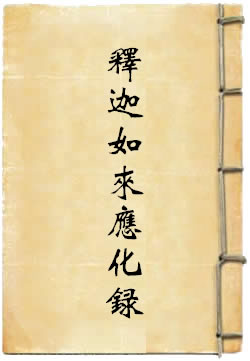 釋迦如來應化録